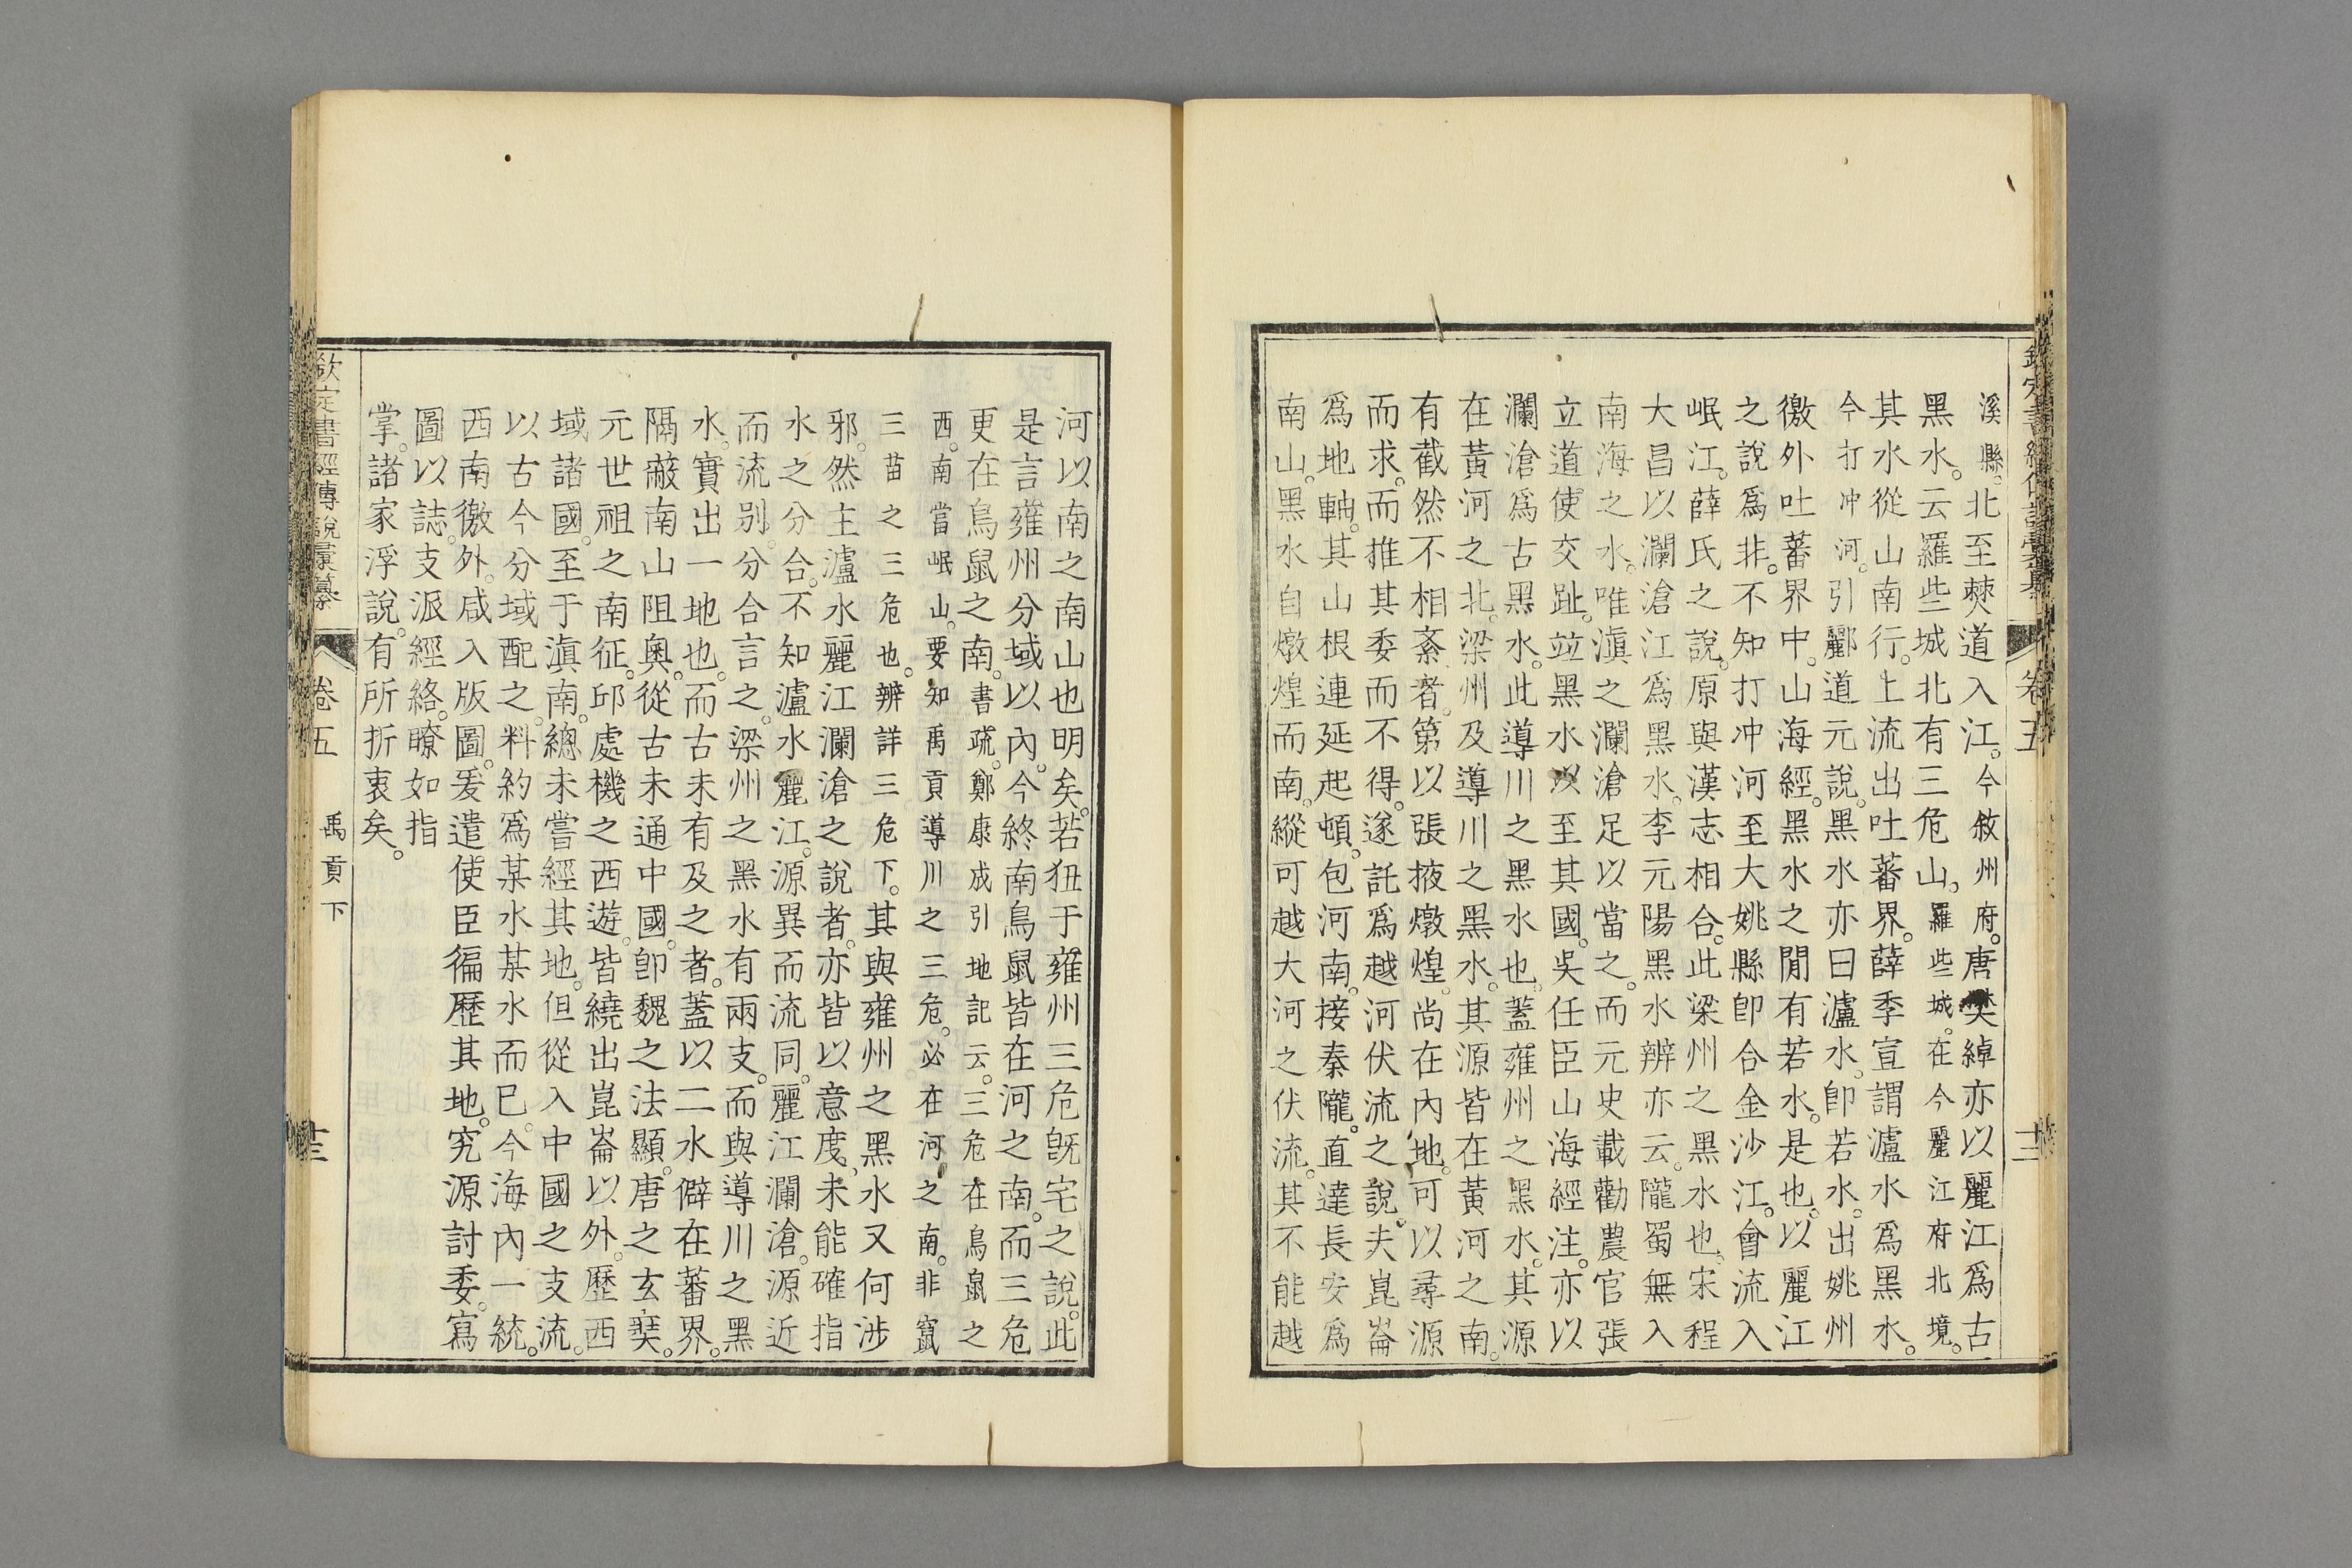 溪縣。北至僰道入江。今敘州府。唐樊綽亦以麗江爲古
黑水。云羅些城北有三危山。羅些城。在今麗江府北境。
其水從山南行。上流出吐蕃界。薛季宣謂瀘水爲黑水。
今打冲河。引酈道元說。黑水亦曰瀘水。卽若水。出姚州
徼外吐蕃界中。山海經。黑水之閒有若水。是也。以麗江
之說爲非。不知打冲河至大姚縣卽合金沙江。會流入
岷江。薛氏之說。原與漢志相合。此梁州之黑水也。宋程
大昌以瀾滄江爲黑水。李元陽黑水辨亦云。隴蜀無入
南海之水。唯滇之瀾滄足以當之。而元史載勸農官張
立道使交趾。竝黑水以至其國。吳任臣山海經注。亦以
瀾滄爲古黑水。此導川之黑水也。蓋雍州之黑水。其源
在黃河之北。梁州及導川之黑水。其源皆在黃河之南。
有截然不相紊者。第以張掖燉煌。尚在內地。可以尋源
而求。而推其委而不得。遂託爲越河伏流之說。夫崑崙
爲地軸。其山根連延起頓。包河南。接秦隴。直達長安爲
南山。黑水自燉煌而南。縱可越大河之伏流。其不能越
欽定書經傳說彙纂 卷五
河以南之南山也明矣。若狃于雍州三危旣宅之說。此
是言雍州分域以內。今終南鳥鼠皆在河之南。而三危
更在鳥鼠之南。書疏。鄭康成引地記云。三危在鳥鼠之
西。南當岷山。要知禹貢導川之三危。必在河之南。非竄
三苗之三危也。辨詳三危下。其與雍州之黑水又何涉
邪。然主瀘水麗江瀾滄之說者。亦皆以意度。未能確指
水之分合。不知瀘水麗江。源異而流同。麗江瀾滄。源近
而流別。分合言之。梁州之黑水有兩支。而與導川之黑
水。實出一地也。而古未有及之者。蓋以二水僻在蕃界。
隔蔽南山阻奧。從古未通中國。卽魏之法顯。唐之玄奘。
元世祖之南征。邱處機之西遊。皆繞出崑崙以外。歷西
域諸國。至于滇南。總未嘗經其地。但從入中國之支流。
以古今分域配之。料約爲某水某水而已。今海內一統。
西南徼外。咸入版圖。爰遣使臣徧歷其地。究源討委。寫
圖以誌。支派經絡。瞭如指
掌。諸家浮說。有所折衷矣。
欽定書經傳說彙纂 卷五 禹貢下